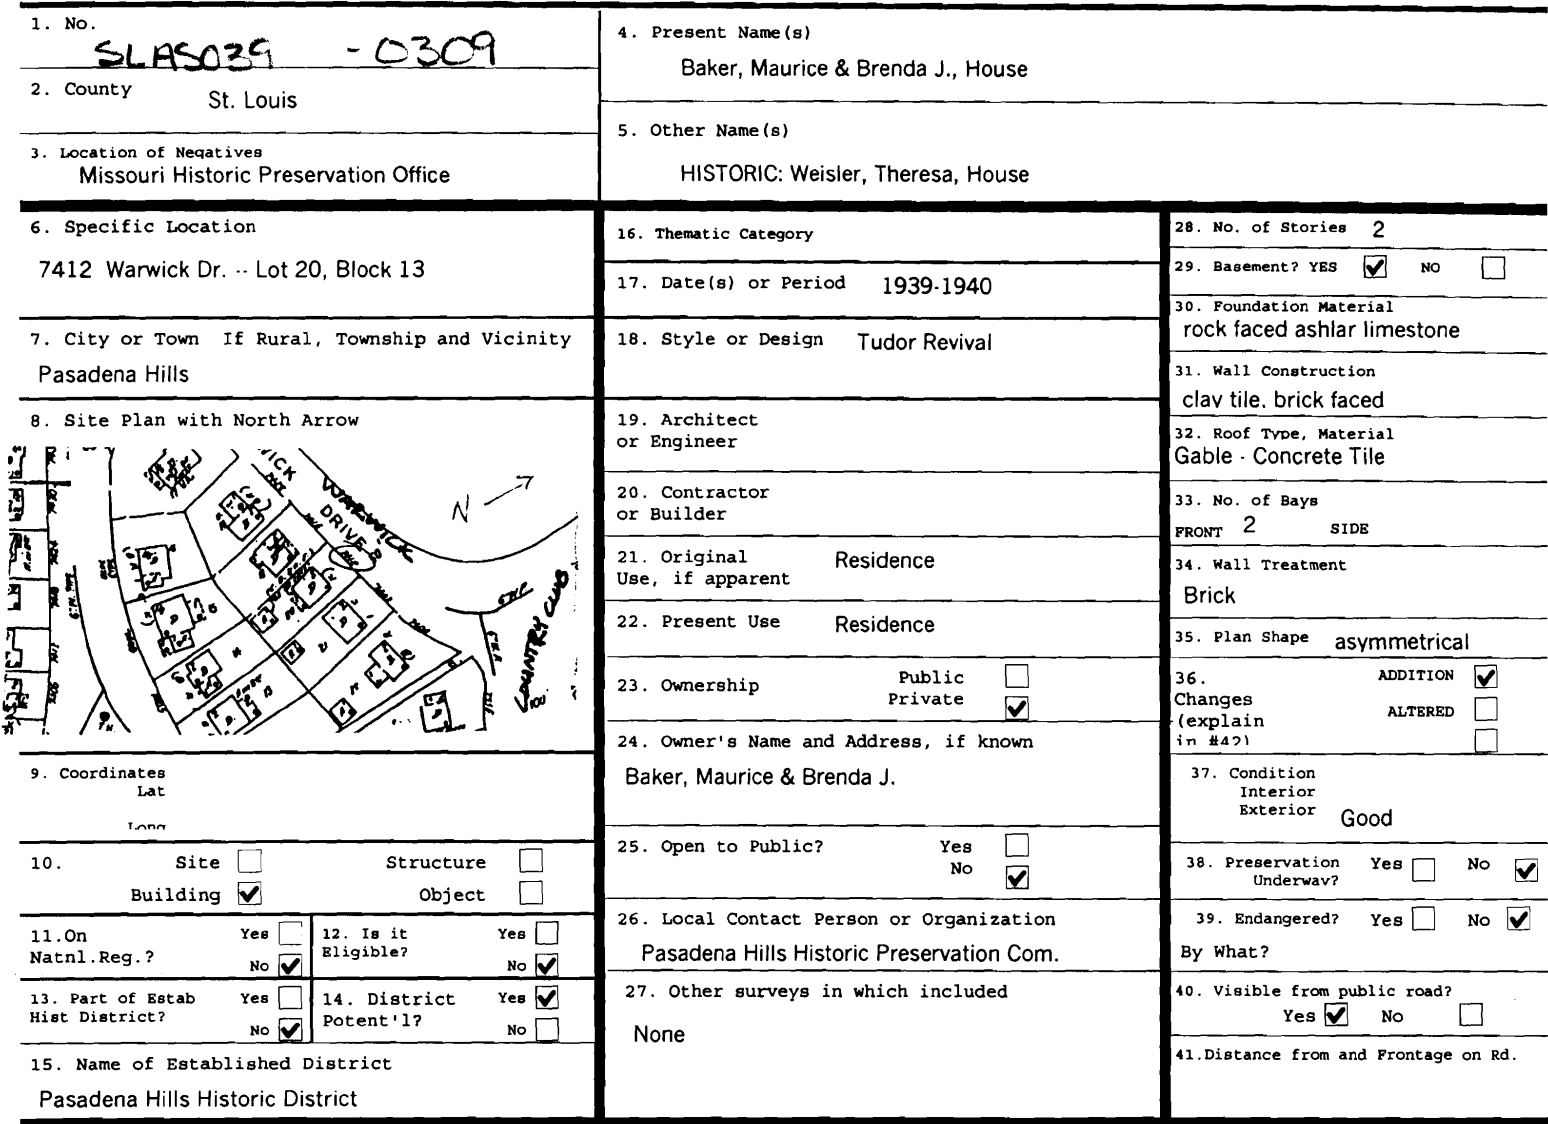 1. No.
SLAS039 -0309
2. County
St. Louis
3. Location of Negatives
Missouri Historic Preservation Office
4. Present Name(s)
Baker, Maurice & Brenda J., House
5. Other Name(s)
HISTORIC: Weisler, Theresa, House
6. Specific Location
7412 Warwick Dr. -- Lot 20, Block 13
7. City or Town If Rural, Township and Vicinity
Pasadena Hills
8. Site Plan with North Arrow
WARWICK
DRIVE
N
COUNTRY CLUB
9. Coordinates
Lat
Long
10. Site Structure
Building ✓ Object
11.On Yes
Natnl.Reg.? No ✓
12. Is it Yes
Eligible? No ✓
13. Part of Estab Yes
Hist District? No ✓
14. District Yes ✓
Potent'l? No
15. Name of Established District
Pasadena Hills Historic District
16. Thematic Category
17. Date(s) or Period 1939-1940
18. Style or Design Tudor Revival
19. Architect
or Engineer
20. Contractor
or Builder
21. Original Residence
Use, if apparent
22. Present Use Residence
23. Ownership Public
Private ✓
24. Owner's Name and Address, if known
Baker, Maurice & Brenda J.
25. Open to Public? Yes
No ✓
26. Local Contact Person or Organization
Pasadena Hills Historic Preservation Com.
27. Other surveys in which included
None
28. No. of Stories 2
29. Basement? YES ✓ NO
30. Foundation Material
rock faced ashlar limestone
31. Wall Construction
clay tile, brick faced
32. Roof Type, Material
Gable - Concrete Tile
33. No. of Bays
FRONT 2 SIDE
34. Wall Treatment
Brick
35. Plan Shape asymmetrical
36. ADDITION ✓
Changes
(explain ALTERED
in #42)
37. Condition
Interior
Exterior Good
38. Preservation Yes No ✓
Underway?
39. Endangered? Yes No ✓
By What?
40. Visible from public road?
Yes ✓ No
41.Distance from and Frontage on Rd.